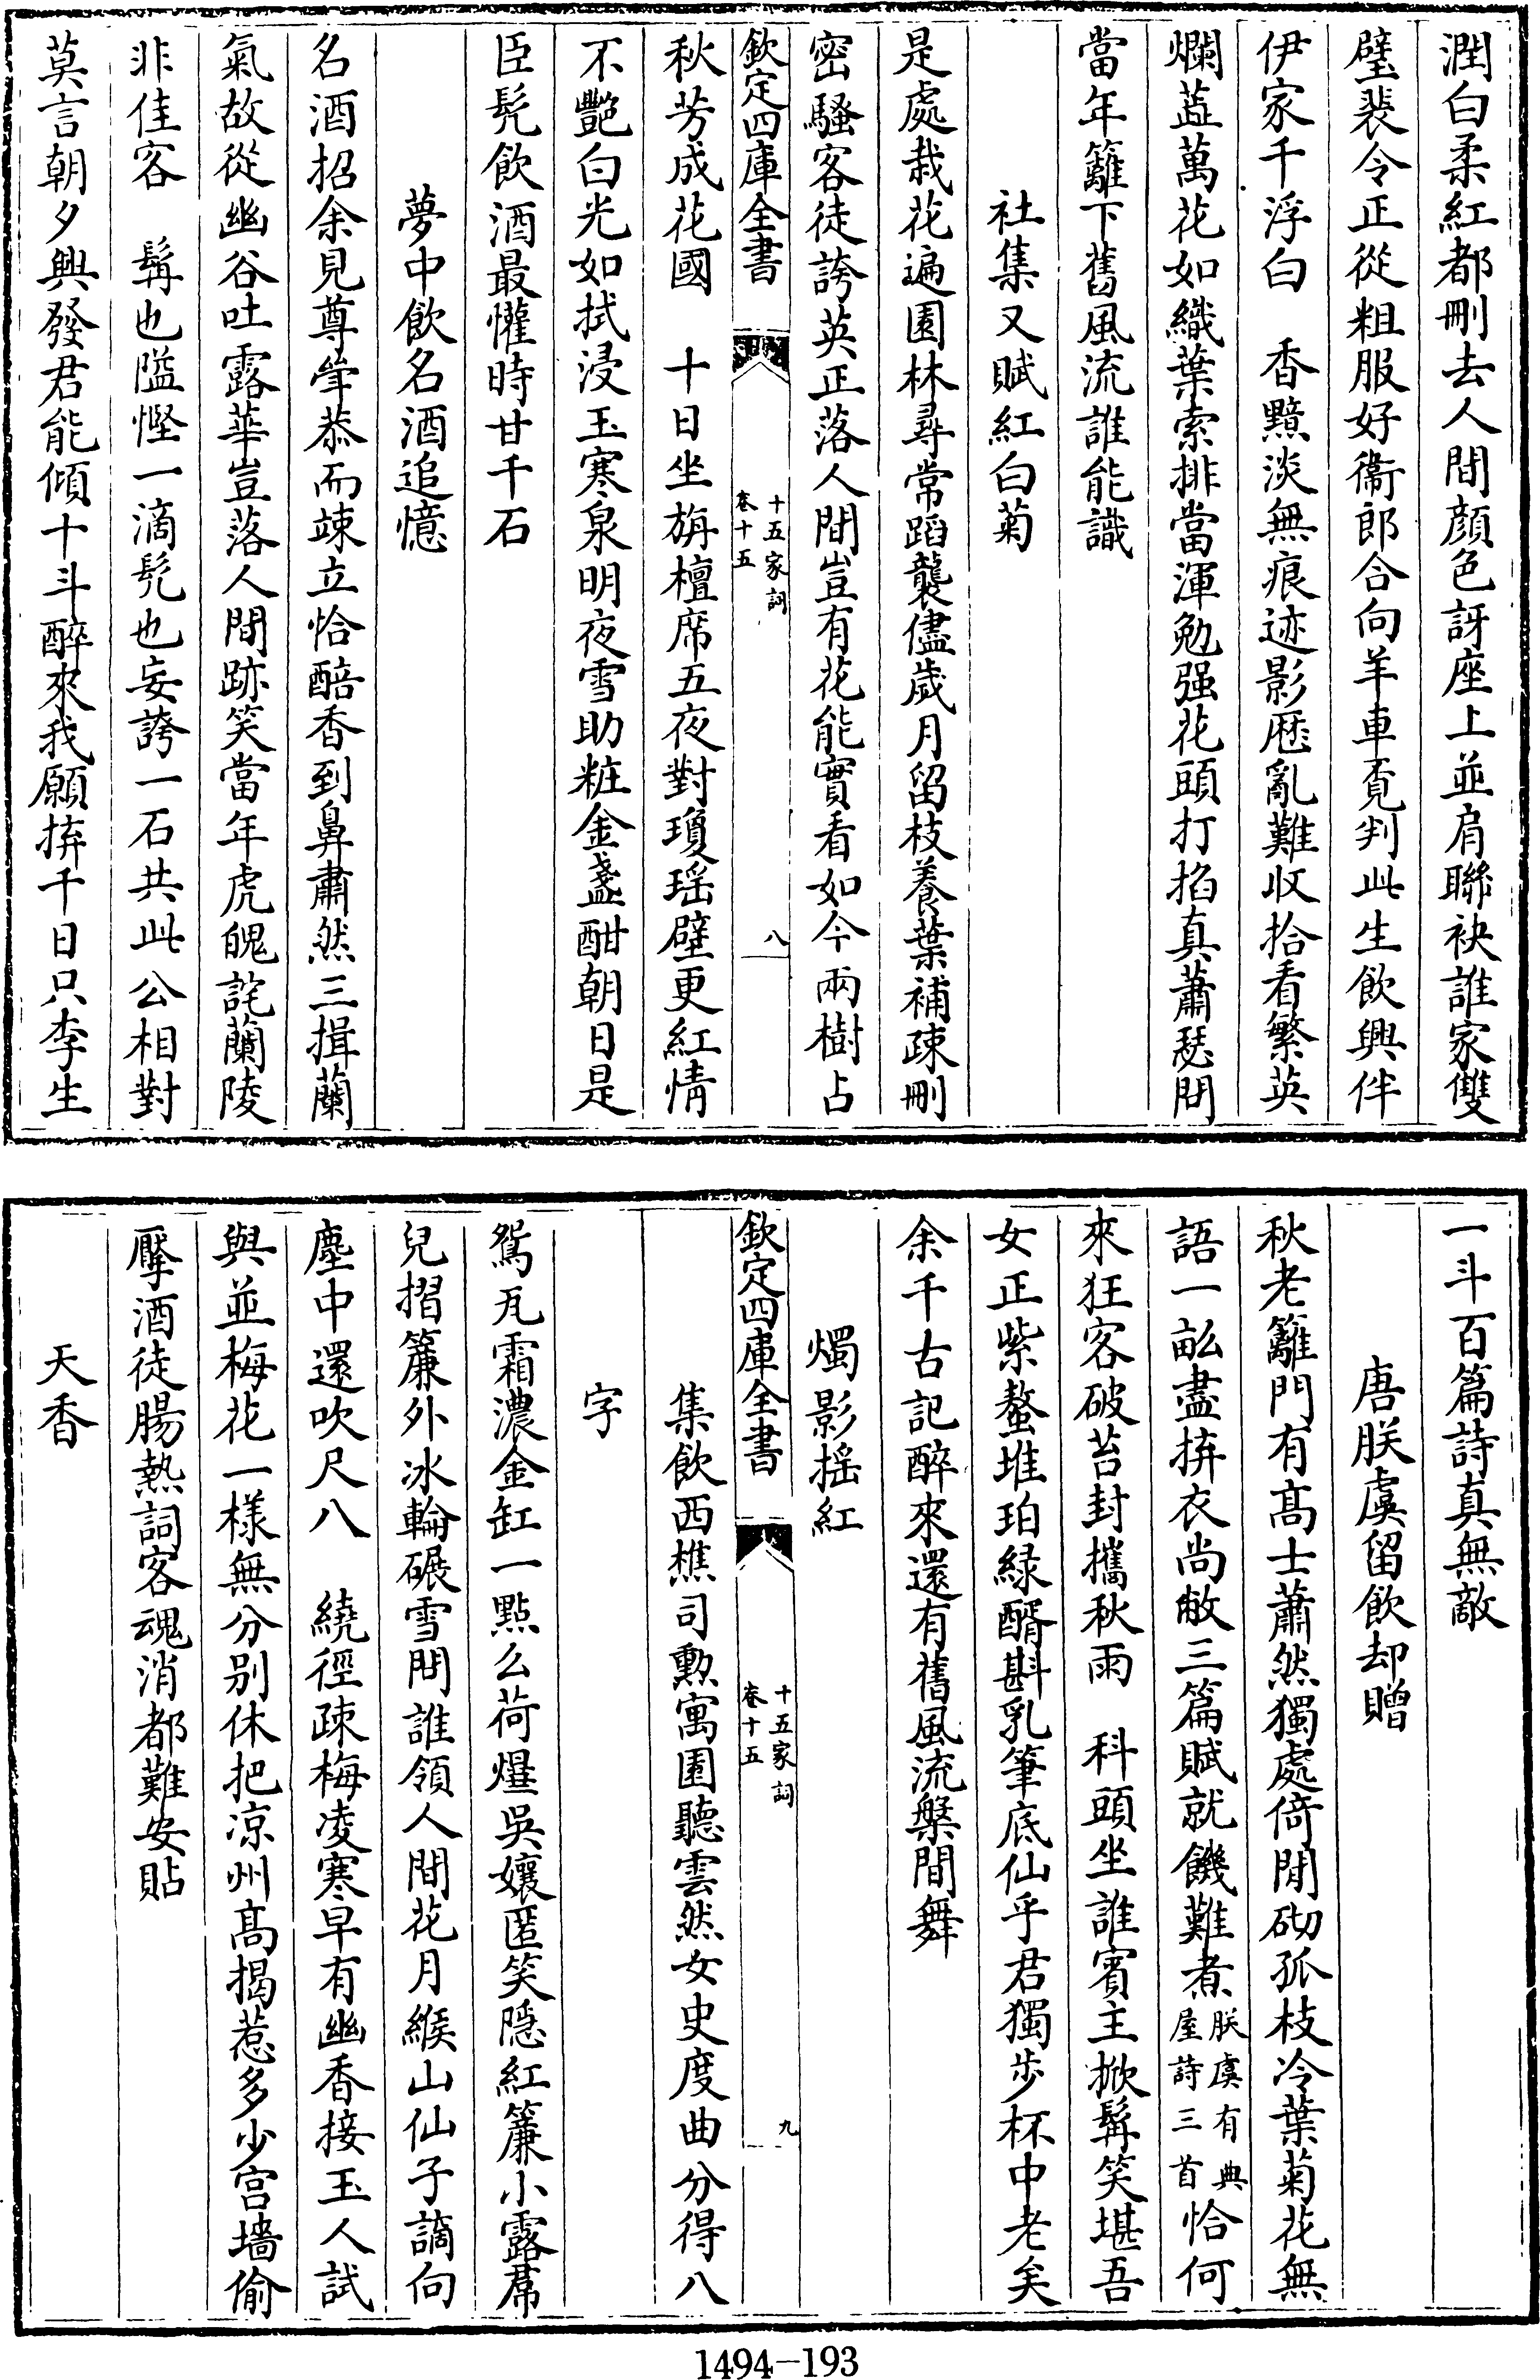 潤白柔紅都刪去人間顔色訝座上並肩聯袂誰家雙
璧裴令正從粗服好衞郎合向羊車覔判此生飲興伴
伊家千浮白　香黯淡無痕迹影厯亂難收拾看繁英
爛蕋萬花如織葉索排當渾勉强花頭打掐真蕭瑟問
當年籬下舊風流誰能識
社集又賦紅白菊
是處栽花遍園林尋常蹈襲儘歲月留枝養葉補疎刪
密騷客徒誇英正落人間豈有花能實看如今兩樹占
欽定四庫全書
十五家詞
卷十五
八
秋芳成花國　十日坐旃檀席五夜對瓊瑶壁更紅情
不艷白光如拭浸玉寒泉明夜雪助粧金盞酣朝日是
臣髠飲酒最懽時甘千石
夢中飲名酒追憶
名酒招余見尊罍恭而竦立恰醅香到鼻肅然三揖蘭
氣故從幽谷吐露華豈落人間跡笑當年虎魄詫蘭陵
非佳客　髯也隘慳一滴髠也妄誇一石共此公相對
莫言朝夕興發君能傾十斗醉來我願拚千日只李生
一斗百篇詩真無敵
唐朕虞留飲却贈
秋老籬門有髙士蕭然獨處倚閒砌孤枝冷葉菊花無
語一畝盡拚衣尚敝三篇賦就饑難煮朕虞有典屋詩三首恰何
來狂客破苔封攜秋雨　科頭坐誰賓主掀髯笑堪吾
女正紫螯堆珀緑醑斟乳筆底仙乎君獨步杯中老矣
余千古記醉來還有舊風流槃間舞
燭影揺紅
欽定四庫全書
十五家詞
卷十五
九
集飲西樵司勳寓園聽雲然女史度曲分得八
字
鴛瓦霜濃金缸一點么荷爆吳孃匿笑隠紅簾小露帬
兒摺簾外冰輪碾雪問誰領人間花月緱山仙子謫向
塵中還吹尺八　繞徑疎梅凌寒早有幽香接玉人試
與並梅花一様無分别休把凉州髙揭惹多少宫墻偷
擪酒徒腸熱詞客魂消都難安貼
天香
1494—193